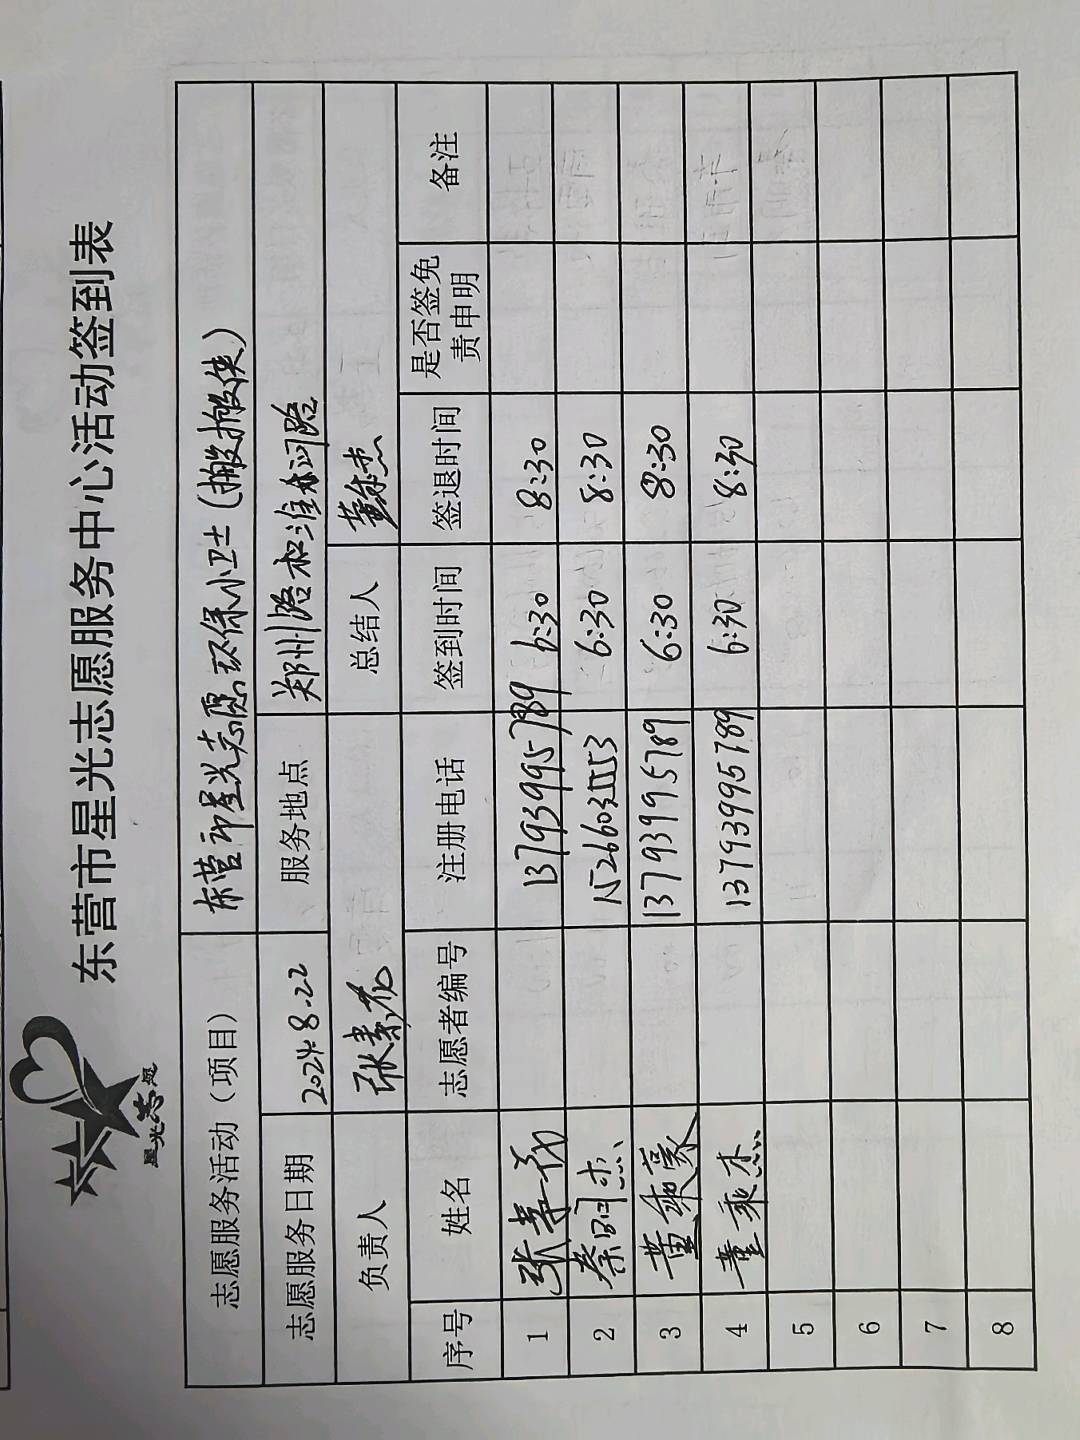 星光志愿
东营市星光志愿服务中心活动签到表
志愿服务活动（项目） 东营市星光志愿环保小卫士（搬搬侠）
志愿服务日期 2024.8.22 服务地点 郑州路和淮河路
负责人 张素花 总结人
序号 姓名 志愿者编号 注册电话 签到时间 签退时间 是否签免责申明 备注
1 13793995789 6:30 8:30
2 秦明杰 15266032553 6:30 8:30
3 董乘蒙 13793995789 6:30 8:30
4 董乘杰 13793995789 6:30 8:30
5
6
7
8